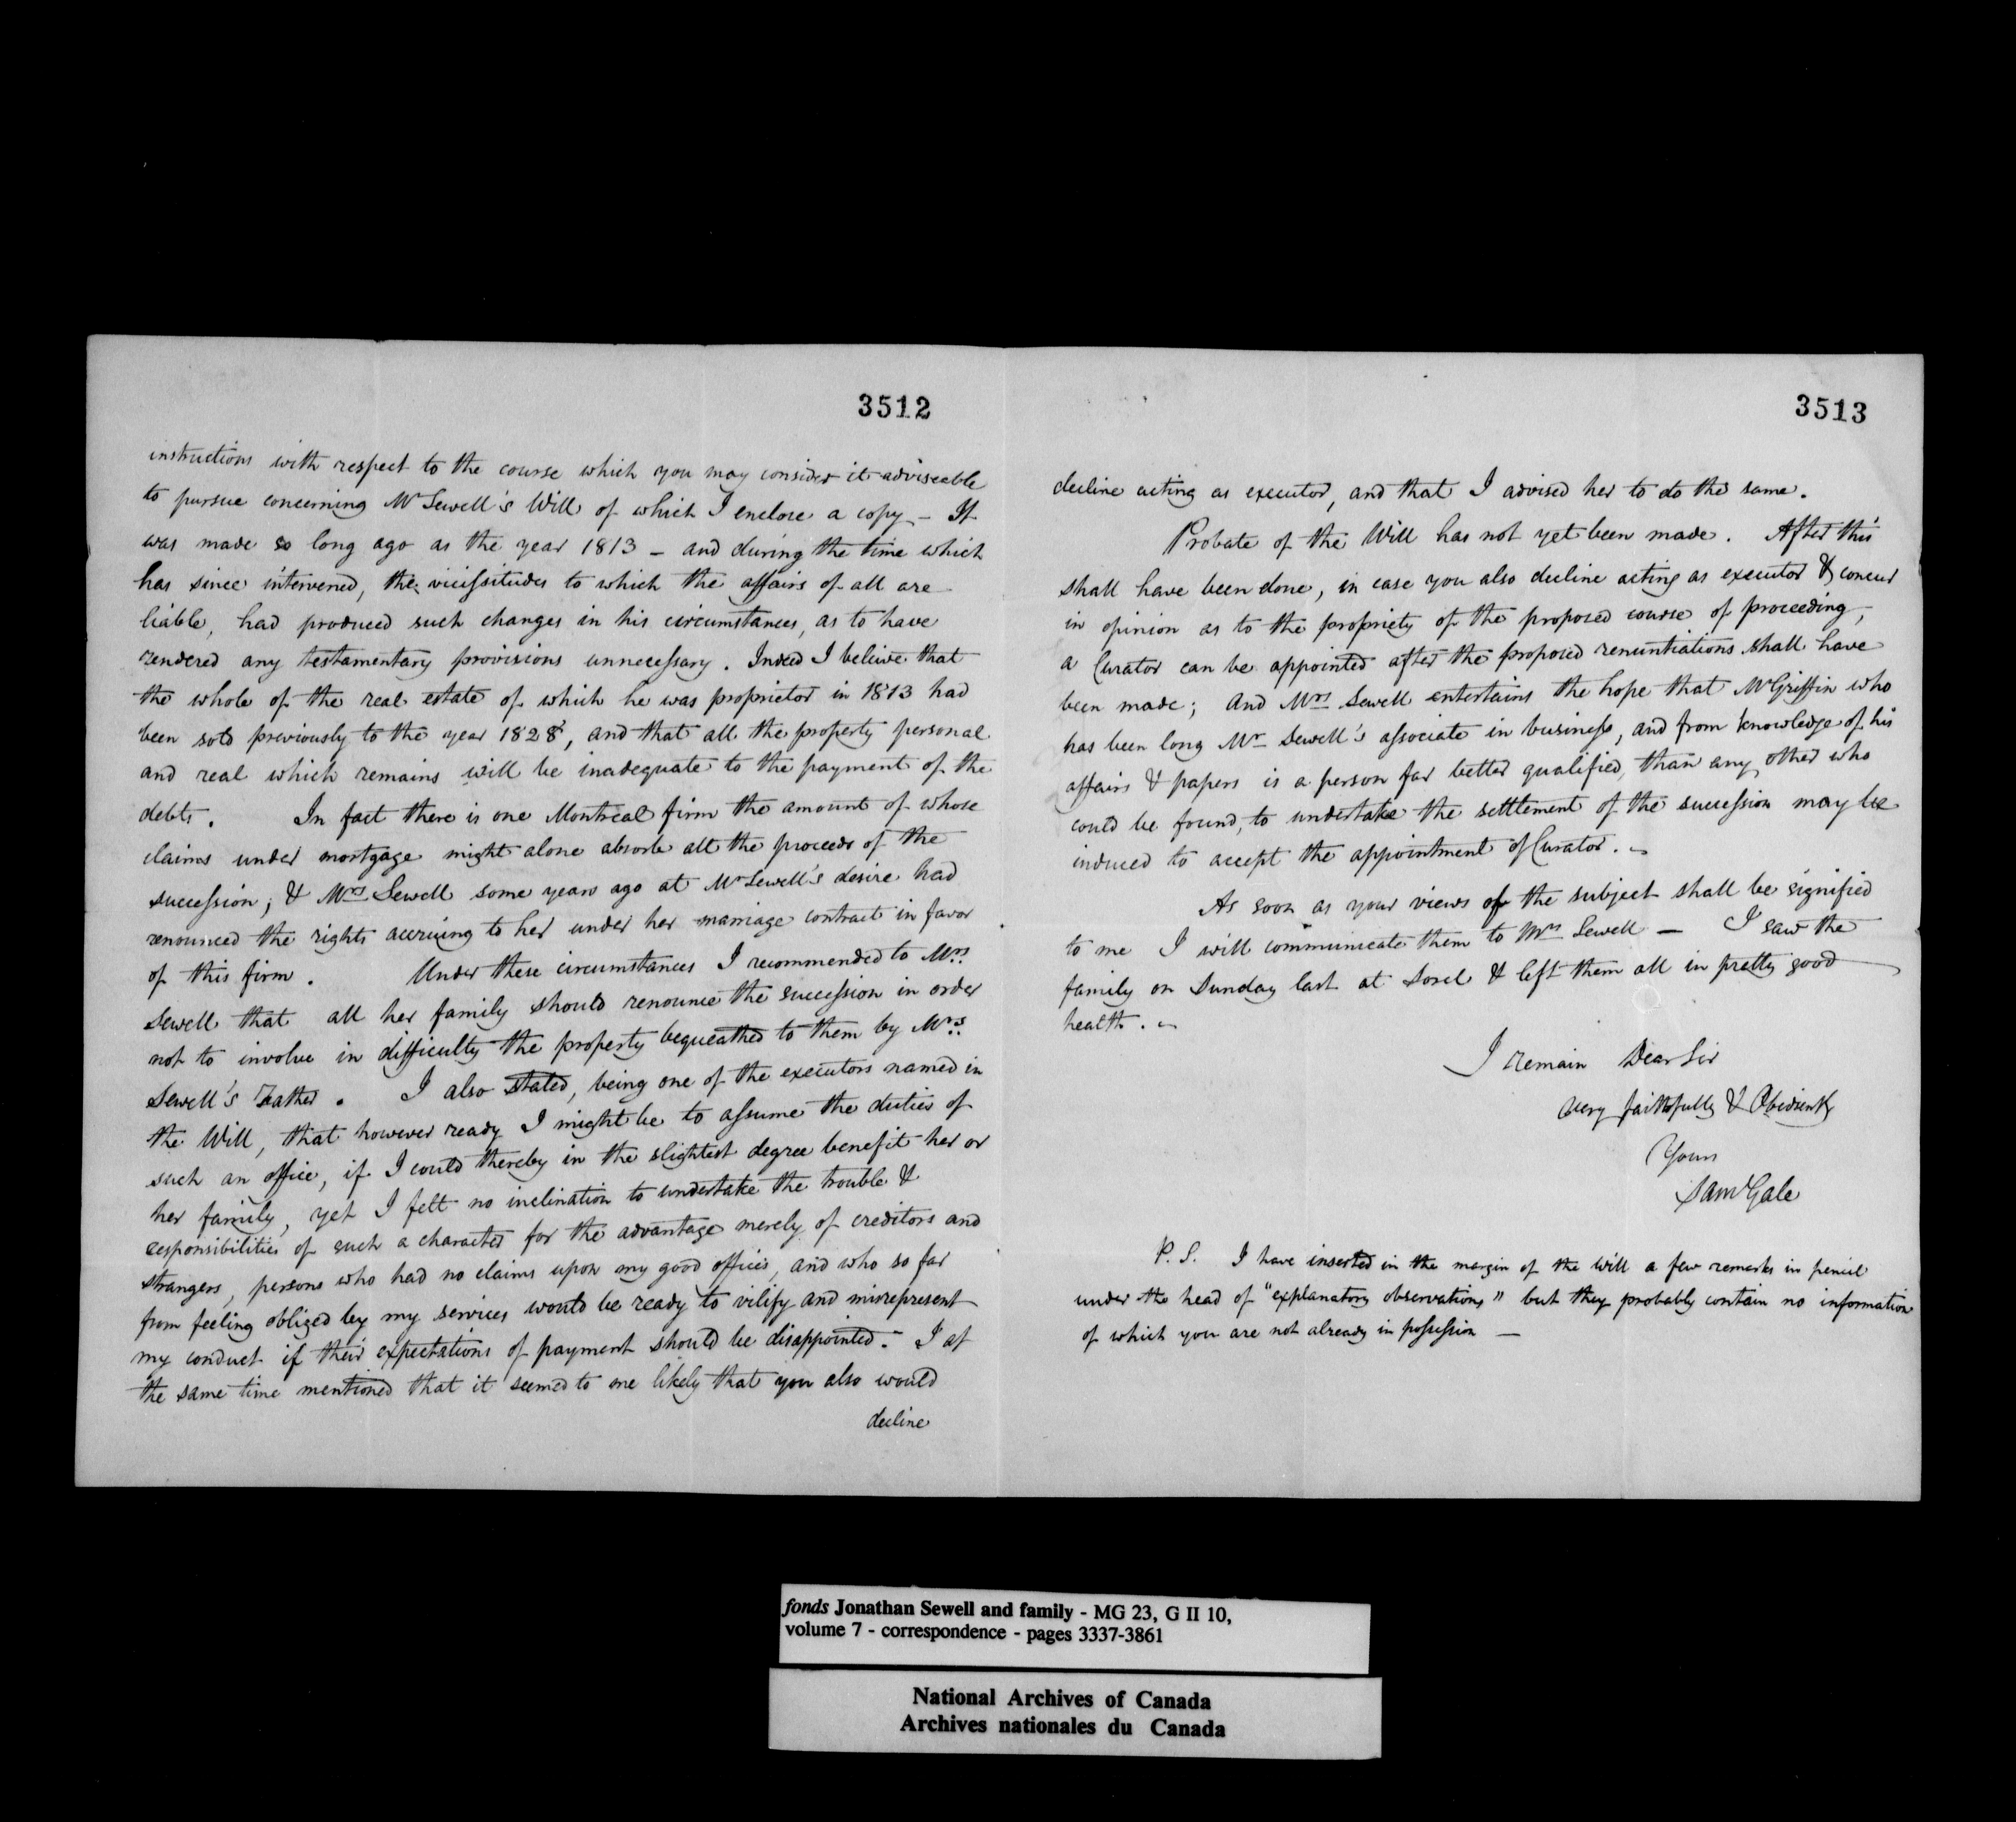 3512
instructions with respect to the course which you may consider it adviseable
to pursue concerning Mr Sewell's Will of which I enclose a copy – It
was made so long ago as the year 1813 – and during the time which
has since intervened, the vicissitudes to which the affairs of all are
liable, had produced such changes in his circumstances, as to have
rendered any testamentary provisions unnecessary. Indeed I believe that
the whole of the real estate of which he was proprietor in 1813 had
been sold previously to the year 1828, and that all the property personal
and real which remains will be inadequate to the payment of the
debts. In fact there is one Montreal firm the amount of whose
claims under mortgage might alone absorb all the proceeds of the
succession; & Mrs Sewell some years ago at Mr Sewell's desire had
renounced the rights accruing to her under her marriage contract in favor
of this firm. Under these circumstances I recommended to Mrs
Sewell that all her family should renounce the succession in order
not to involve in difficulty the property bequeathed to them by Mrs
Sewell's Father. I also stated, being one of the executors named in
the Will, that however ready I might be to assume the duties of
such an office, if I could thereby in the slightest degree benefit her or
her family, yet I felt no inclination to undertake the trouble &
responsibilities of such a character for the advantage merely of creditors and
strangers, persons who had no claims upon my good offices, and who so far
from feeling obliged by my services would be ready to vilify and misrepresent
my conduct if their expectations of payment should be disappointed. – I at
the same time mentioned that it seemed to me likely that you also would
decline
3513
decline acting as executor, and that I advised her to do the same.
Probate of the Will has not yet been made. After this
shall have been done, in case you also decline acting as executor & concur
in opinion as to the propriety of the proposed course of proceeding,
a Curator can be appointed after the proposed renuntiations shall have
been made; and Mrs Sewell entertains the hope that Mr Griffin who
has been long Mr Sewell's associate in business, and from knowledge of his
affairs & papers is a person far better qualified, than any other who
could be found, to undertake the settlement of the succession may be
induced to accept the appointment of Curator. –
As soon as your views of the subject shall be signified
to me I will communicate them to Mrs Sewell – I saw the
family on Sunday last at Sorel & left them all in pretty good
health. –
I remain Dear Sir
Very faithfully & Obediently
Yours
Saml Gale
P.S. I have inserted in the margin of the Will a few remarks in pencil
under the head of "explanatory observations" but they probably contain no information
of which you are not already in possession –
fonds Jonathan Sewell and family - MG 23, G II 10,
volume 7 - correspondence - pages 3337-3861
National Archives of Canada
Archives nationales du Canada